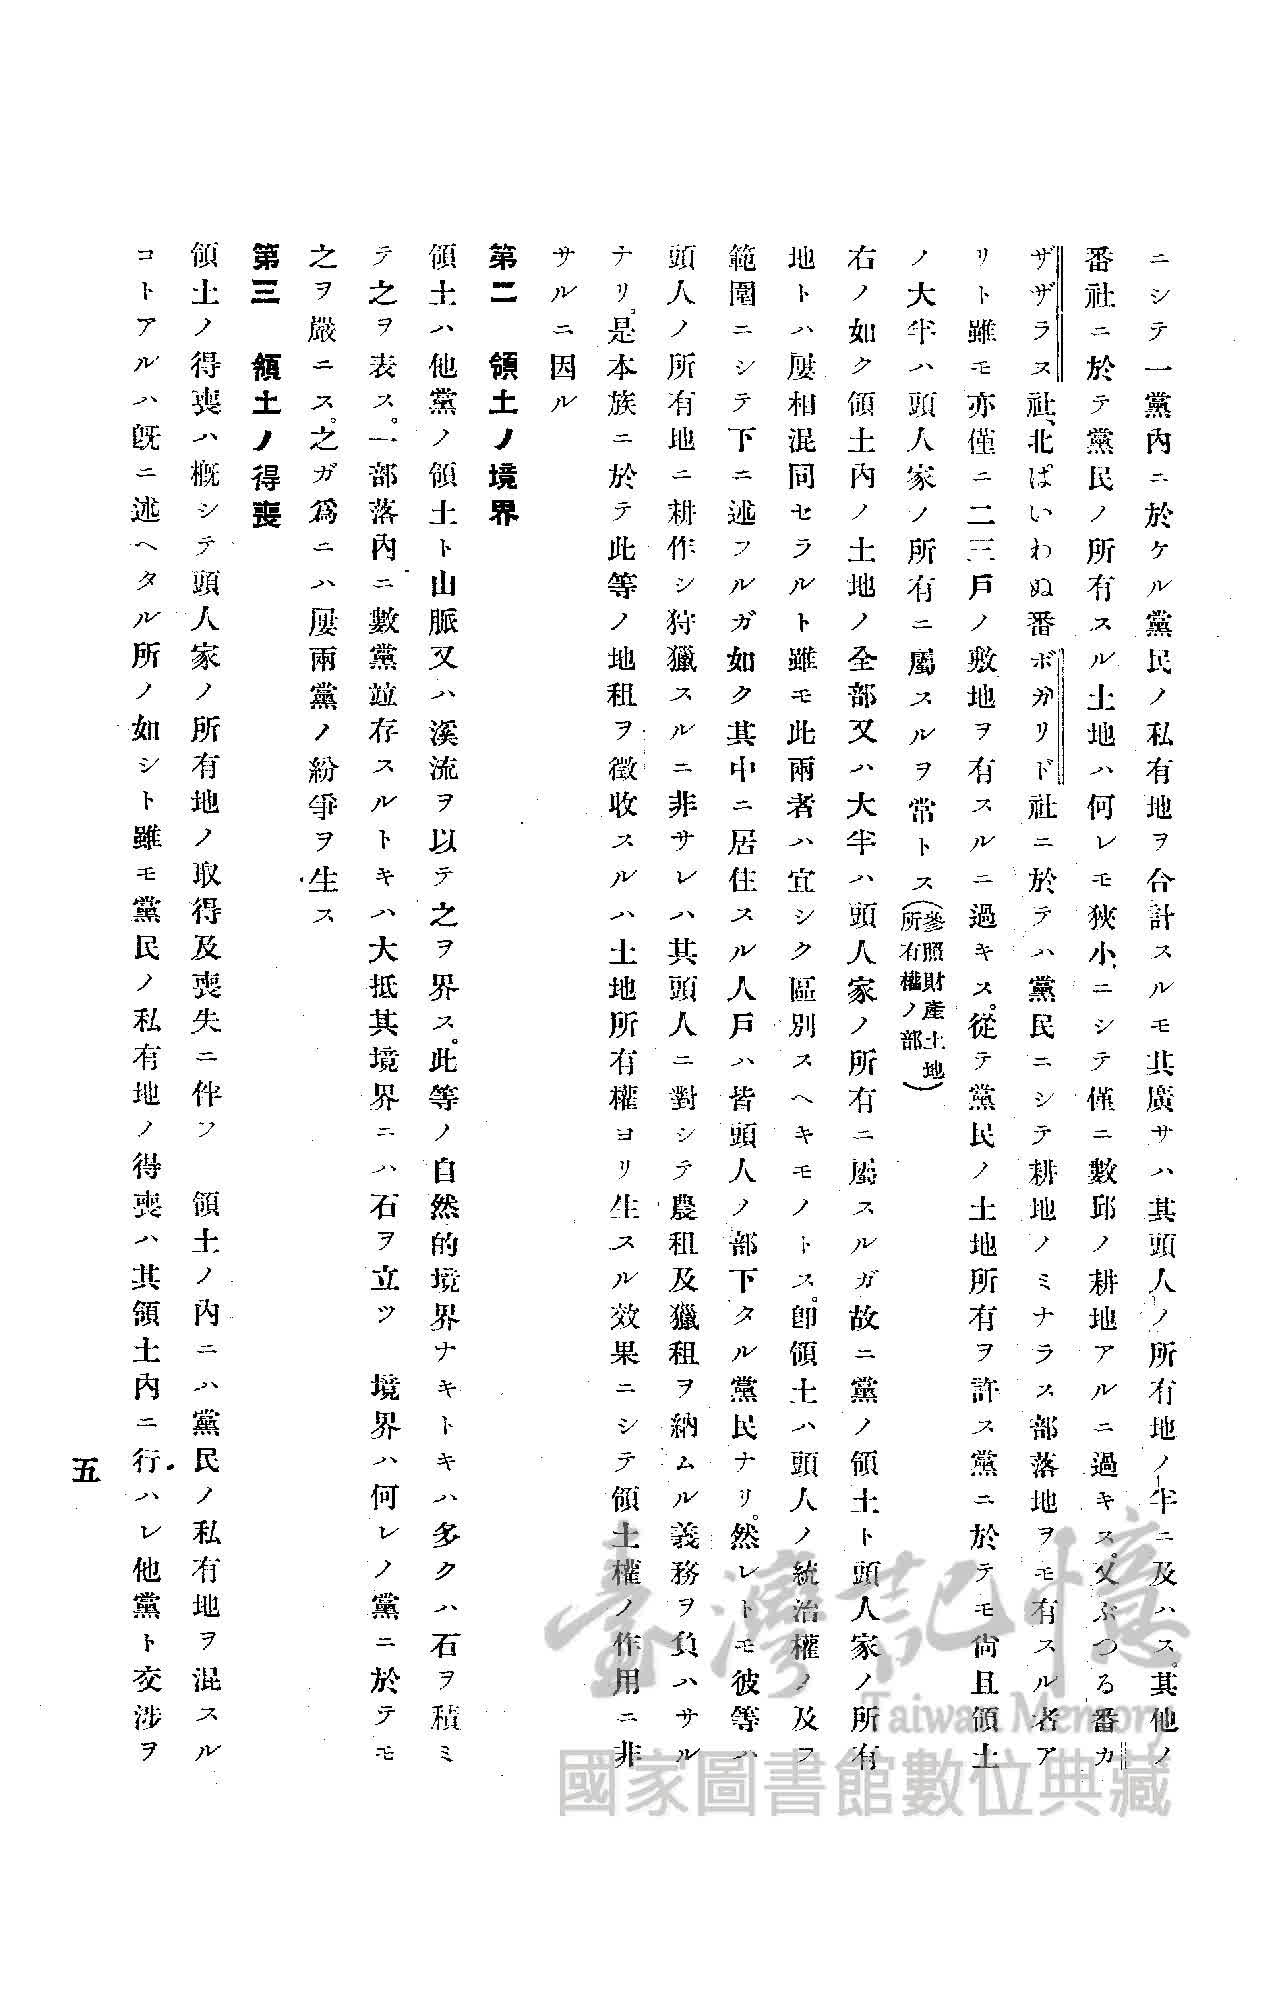 ニシテ一黨內ニ於ケル黨民ノ私有地ヲ合計スルモ其廣サハ其頭人ノ所有地ノ半ニ及ハス。其他ノ
番社ニ於テ黨民ノ所有スル土地ハ何レモ狹小ニシテ僅ニ數邱ノ耕地アルニ過キス。又ぶつる番カ
ザザラス社、北ぱいわぬ番ボガリド社ニ於テハ黨民ニシテ耕地ノミナラス部落地ヲモ有スル者ア
リト雖モ亦僅ニ二三戶ノ敷地ヲ有スルニ過キス。從テ黨民ノ土地所有ヲ許ス黨ニ於テモ尙且領土
ノ大半ハ頭人家ノ所有ニ屬スルヲ常トス(參照財產土地所有權ノ部)
右ノ如ク領土內ノ土地ノ全部又ハ大半ハ頭人家ノ所有ニ屬スルガ故ニ黨ノ領土ト頭人家ノ所有
地トハ屢相混同セラルト雖モ此兩者ハ宜シク區別スヘキモノトス。卽領土ハ頭人ノ統治權ノ及フ
範圍ニシテ下ニ述フルガ如ク其中ニ居住スル人戶ハ皆頭人ノ部下タル黨民ナリ。然レトモ彼等ハ
頭人ノ所有地ニ耕作シ狩獵スルニ非サレハ其頭人ニ對シテ農租及獵租ヲ納ムル義務ヲ負ハサル
ナリ。是本族ニ於テ此等ノ地租ヲ徵收スルハ土地所有權ヨリ生スル效果ニシテ領土權ノ作用ニ非
サルニ因ル
第二 領土ノ境界
領土ハ他黨ノ領土ト山脈又ハ溪流ヲ以テ之ヲ界ス。此等ノ自然的境界ナキトキハ多クハ石ヲ積ミ
テ之ヲ表ス。一部落內ニ數黨竝存スルトキハ大抵其境界ニハ石ヲ立ツ 境界ハ何レノ黨ニ於テモ
之ヲ嚴ニス。之ガ爲ニハ屢兩黨ノ紛爭ヲ生ス
第三 領土ノ得喪
領土ノ得喪ハ槪シテ頭人家ノ所有地ノ取得及喪失ニ伴フ 領土ノ內ニハ黨民ノ私有地ヲ混スル
コトアルハ旣ニ述ヘタル所ノ如シト雖モ黨民ノ私有地ノ得喪ハ其領土內ニ行ハレ他黨ト交涉ヲ
五
臺灣記憶
Taiwan Memory
國家圖書館數位典藏